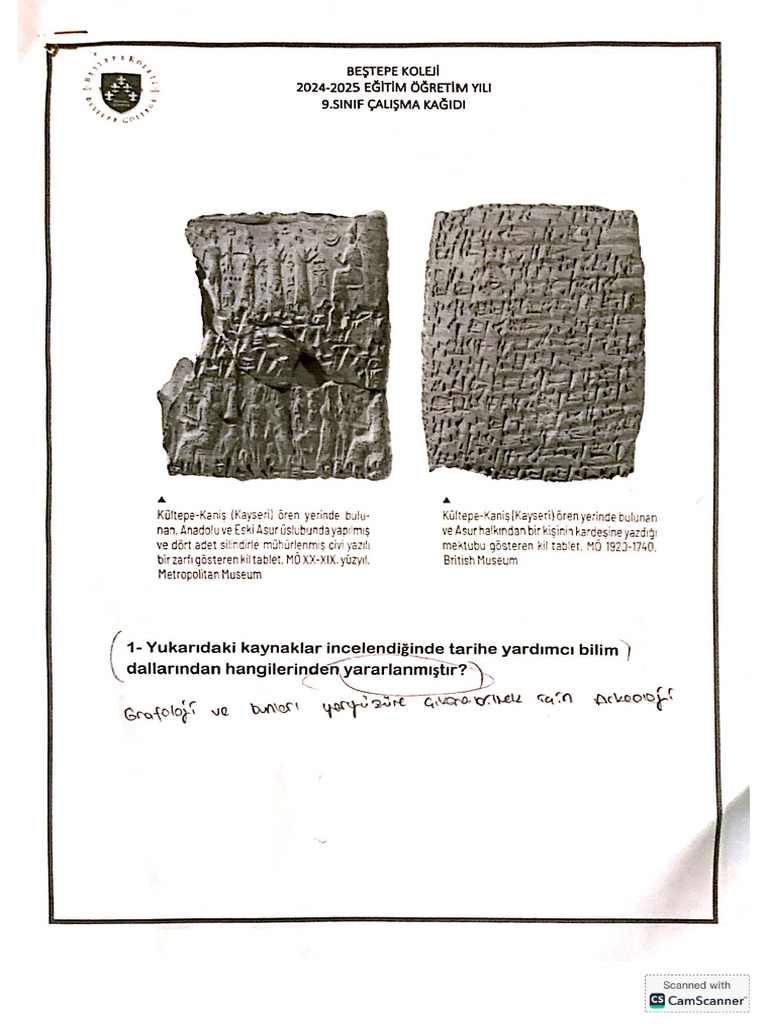 BEŞTEPE KOLEJİ
BEŞTEPE COLLEGE
BEŞTEPE KOLEJİ
2024-2025 EĞİTİM ÖĞRETİM YILI
9.SINIF ÇALIŞMA KAĞIDI
Kültepe-Kaniş (Kayseri) ören yerinde bulu-
nan, Anadolu ve Eski Asur üslubunda yapılmış
ve dört adet silindirle mühürlenmiş çivi yazılı
bir zarfı gösteren kil tablet, MÖ XX-XIX. yüzyıl,
Metropolitan Museum
Kültepe-Kaniş (Kayseri) ören yerinde bulunan
ve Asur halkından bir kişinin kardeşine yazdığı
mektubu gösteren kil tablet, MÖ 1920-1740,
British Museum
1- Yukarıdaki kaynaklar incelendiğinde tarihe yardımcı bilim
dallarından hangilerinden yararlanmıştır?
Grafoloji ve bunları yeryüzüre çıkarabilmek için Arkeoloji
Scanned with
CS CamScanner